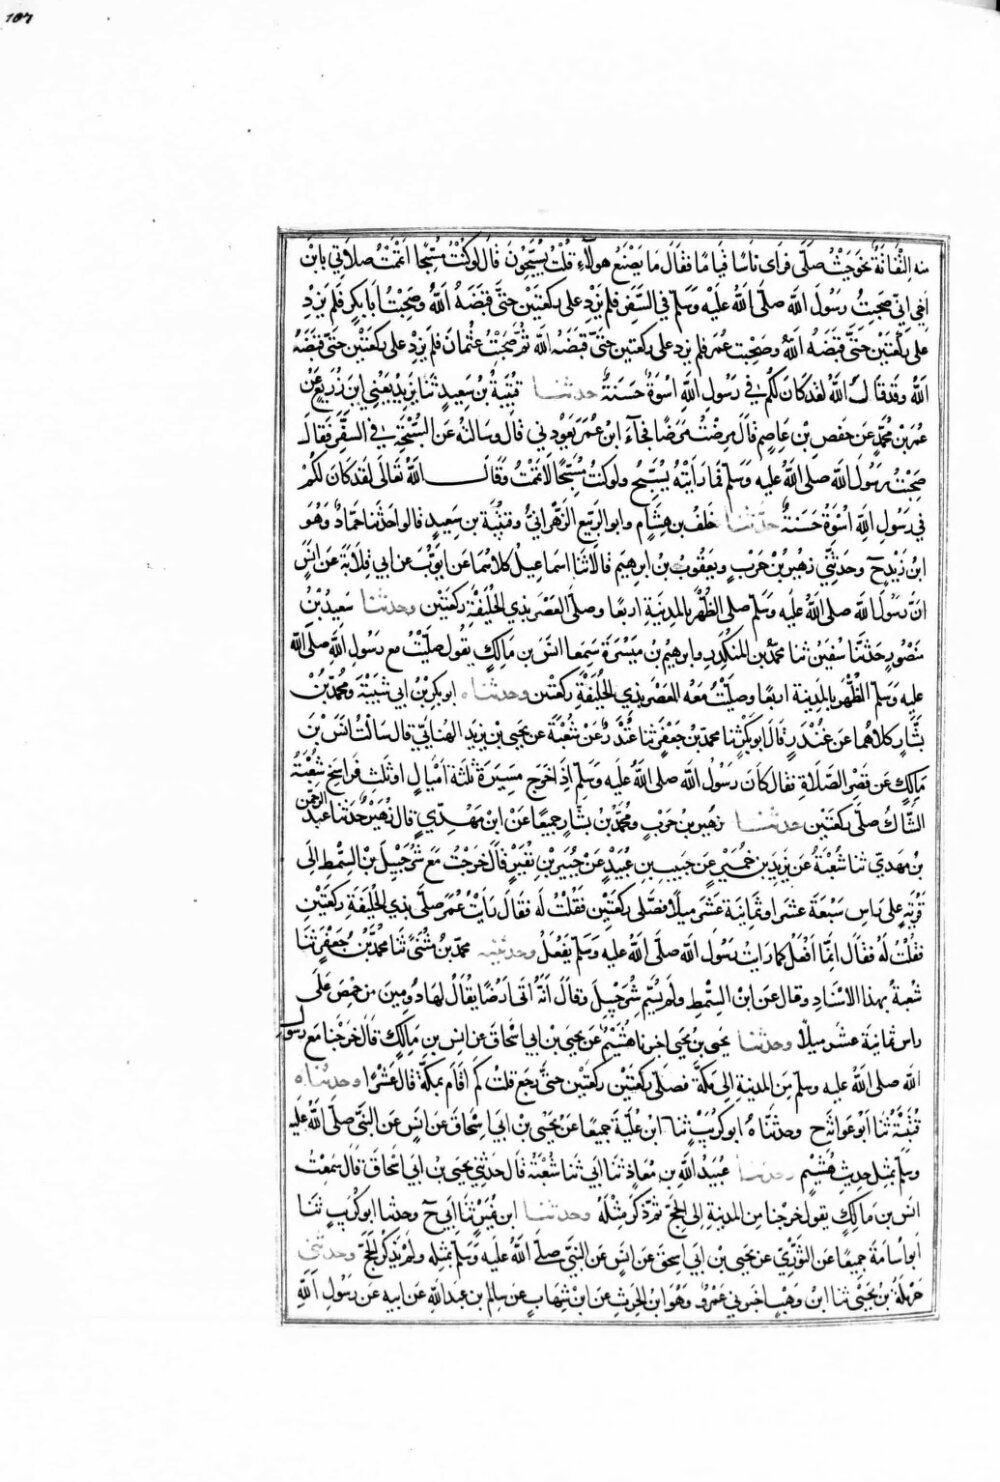 107
منه التفاتة نحو حيث صلى فراى ناسا قياما فقال ما يصنع هولآء قلت يسبحون قال لو كنت مسبحا اتممت صلاتي يا ابن
اخي اني صحبت رسول الله صلى الله عليه وسلم في السفر فلم يزد على ركعتين حتى قبضه الله وصحبت ابا بكر فلم يزد
على ركعتين حتى قبضه الله وصحبت عمر فلم يزد على ركعتين حتى قبضه الله ثم صحبت عثمان فلم يزد على ركعتين حتى قبضه
الله وقد قال الله لقد كان لكم في رسول الله اسوة حسنة حدثنا قتيبة بن سعيد ثنا يزيد يعني ابن زريع عن
عمر بن محمد عن حفص بن عاصم قال مرضت مرضا فجآء ابن عمر يعودني قال وسالته عن السبحة في السفر فقال
صحبت رسول الله صلى الله عليه وسلم فما رايته يسبح ولو كنت مسبحا لاتممت وقال الله تعالى لقد كان لكم
في رسول الله اسوة حسنة حدثنا خلف بن هشام وابو الربيع الزهراني وقتيبة بن سعيد قالوا حدثنا حماد وهو
ابن زيد ح وحدثني زهير بن حرب ويعقوب بن ابرهيم قالا ثنا اسماعيل كلاهما عن ايوب عن ابي قلابة عن انس
ان رسول الله صلى الله عليه وسلم صلى الظهر بالمدينة اربعا وصلى العصر بذي الحليفة ركعتين وحدثنا سعيد بن
منصور حدثنا سفين ثنا محمد بن المنكدر وابرهيم بن ميسرة سمعا انس بن مالك يقول صليت مع رسول الله صلى الله
عليه وسلم الظهر بالمدينة اربعا وصليت معه العصر بذي الحليفة ركعتين وحدثناه ابو بكر بن ابي شيبة ومحمد بن
بشار كلاهما عن غندر قال ابو بكر ثنا محمد بن جعفر ثنا غندر عن شعبة عن يحيى بن يزيد الهنائي قال سالت انس بن
مالك عن قصر الصلاة فقال كان رسول الله صلى الله عليه وسلم اذا خرج مسيرة ثلثة اميال او ثلث فراسخ شعبة
الشاك صلى ركعتين حدثنا زهير بن حرب ومحمد بن بشار جميعا عن ابن مهدي قال زهير حدثنا عبد الرحمن
بن مهدي ثنا شعبة عن يزيد بن خمير عن حبيب بن عبيد عن جبير بن نفير قال خرجت مع شرحبيل بن السمط الى
قرية على راس سبعة عشر او ثمانية عشر ميلا فصلى ركعتين فقلت له فقال رايت عمر صلى بذي الحليفة ركعتين
فقلت له فقال انما افعل كما رايت رسول الله صلى الله عليه وسلم يفعل وحدثنيه محمد بن مثنى ثنا محمد بن جعفر ثنا
شعبة بهذا الاسناد وقال عن ابن السمط ولم يسم شرحبيل وقال انه اتى ارضا يقال لها دومين من حمص على
راس ثمانية عشر ميلا وحدثنا يحيى بن يحيى اخبرنا هشيم عن يحيى بن ابي اسحاق عن انس بن مالك قال خرجنا مع رسول
الله صلى الله عليه وسلم من المدينة الى مكة فصلى ركعتين ركعتين حتى رجع قلت كم اقام بمكة قال عشرا وحدثناه
قتيبة ثنا ابو عوانة ح وحدثناه ابو كريب ثنا ابن علية جميعا عن يحيى بن ابي اسحاق عن انس عن النبي صلى الله عليه
وسلم بمثل حديث هشيم وحدثنا عبيد الله بن معاذ ثنا ابي ثنا شعبة قال حدثني يحيى بن ابي اسحاق قال سمعت
انس بن مالك يقول خرجنا من المدينة الى الحج ثم ذكر مثله وحدثنا ابن نمير ثنا ابي ح وحدثنا ابو كريب ثنا
ابو اسامة جميعا عن الثوري عن يحيى بن ابي اسحق عن انس عن النبي صلى الله عليه وسلم بمثله ولم يذكر الحج وحدثني
حرملة بن يحيى ثنا ابن وهب اخبرني عمرو وهو ابن الحرث عن ابن شهاب عن سالم بن عبد الله عن ابيه عن رسول الله